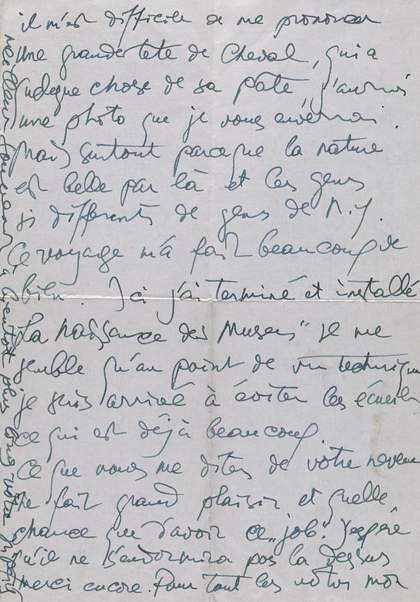 il m'est difficile a me prononcer
une grande tete de Cheval, qui a
quelque chose de sa pate, j'aurai
une photo que je vous enverrai.
Mais surtout parceque la nature
est belle par là et les gens
si differents de gens de N.Y.
Ce voyage m'a fait beaucoup de
bien. Ici j'ai terminé et installé
"La Naissance des Muses" je me
semble qu'au point de vue technique
je suis arrivé à éviter les écueils
ce qui est déjà beaucoup.
Ce que vous me dites de votre neveu
me fait grand plaisir et quelle
chance que d'avoir ce "job". J'espère
qu'il ne s'endormira pas la dessus
merci encore. Pour tout les votres mon
meilleur souvenir à bientot plus long votre